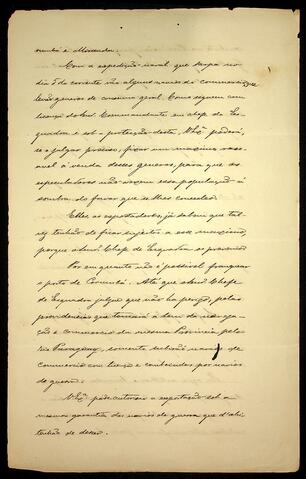 tumbá e Miranda.
Com a expedição naval que zarpa no
dia 5 do corrente vão alguns navios do commercio que
levão generos de consumo geral. Como seguem com
licença do Snr. Commandante em chefe da Es-
quadra e sob a protecção desta, V. Exª poderá,
se o julgar preciso, fixar um maximo rasoa-
vel á venda desses generos, para que os
especuladores não vexem essa população á
sombra do favor que se lhes concedeu.
Elles, os exportadores, já sabem que tal-
vez tenhão de ficar sujeitos a esse maximo,
porque o Snr. Chefe da Esquadra os prevenio.
Por em quanto não é possivel franquear
o porto de Corumbá. Até que o Snr. Chefe
de Esquadra julgue que não ha perigo, pelas
providencias que tomará a bem da navega-
ção e commercio da mesma Provincia pelo
Rio Paraguay, somente subirão navios de
commercio com licença e comboiados por navios
de guerra.
V. Exª pode autorisar a exportação sob a
mesma garantia dos navios de guerra que d'ahi
tenhão de descer.